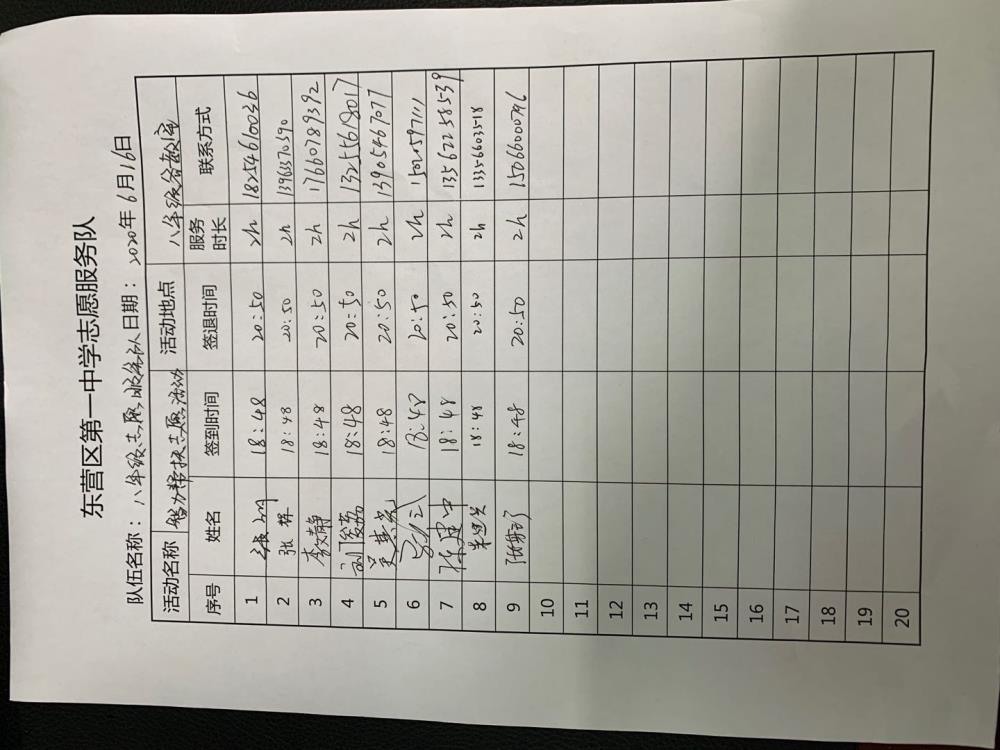 东营区第一中学志愿服务队
队伍名称：八年级志愿服务队 日期：2020年6月16日
活动名称 智力帮扶志愿活动 活动地点 八年级各教室
序号 姓名 签到时间 签退时间 服务时长 联系方式
1 18:48 20:50 2h 18254610036
2 张辉 18:48 20:50 2h 13963370590
3 李文静 18:48 20:50 2h 17660789392
4 刘俊荔 18:48 20:50 2h 13255618017
5 吴其芝 18:48 20:50 2h 13905467077
6 18:48 20:50 2h 15020597111
7 陈建中 18:48 20:50 2h 13562258539
8 18:48 20:50 2h 13356603518
9 18:48 20:50 2h 15066000796
10
11
12
13
14
15
16
17
18
19
20